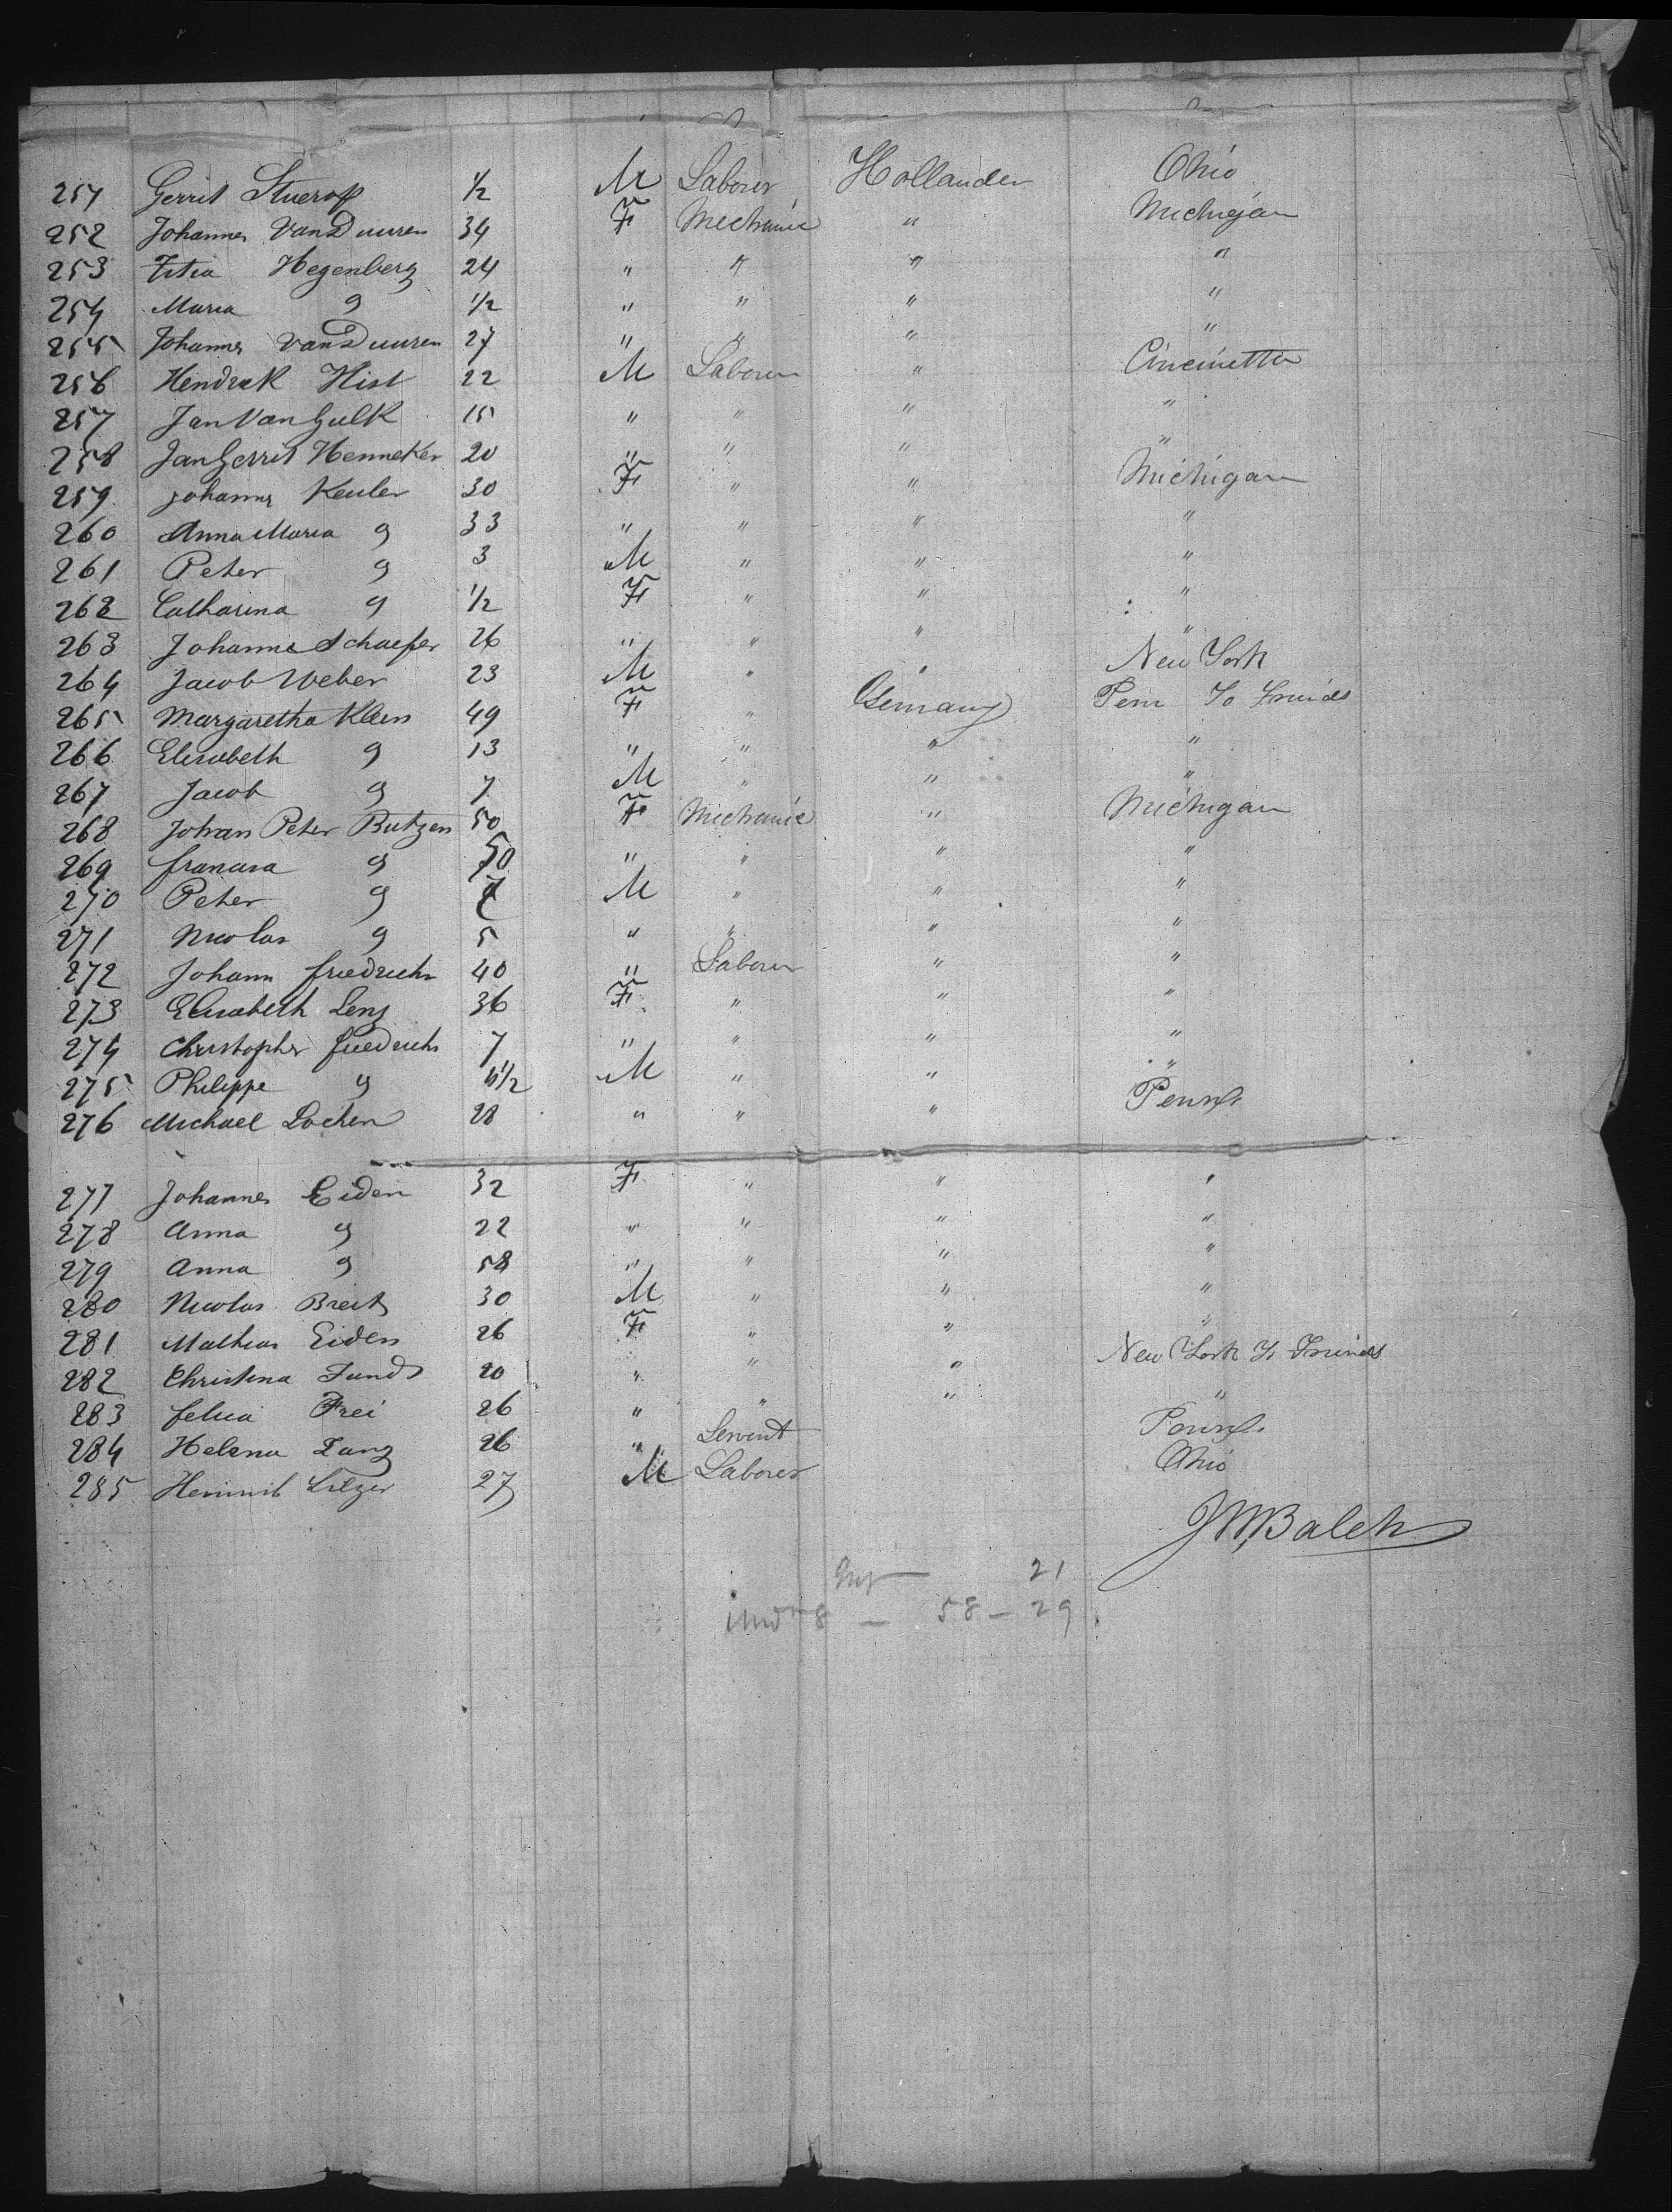 251 Gerrit Stuerop 1/2 M Laborer Hollander Ohio
252 Johannes Van Duuren 34 F Mechanic " Michigan
253 Titia Hegenberg 24 " " " "
254 Maria 9 1/2 " " " "
255 Johannes Van Duuren 27 " " " "
256 Hendrek Hist 22 M Laborer " Cincinetta
257 Jan Van Gulk 15 " " " "
258 Jan Gerrit Henneker 20 " " " "
259 Johannes Keuler 30 F " " Michigan
260 Anna Maria 9 33 " " " "
261 Peter 9 3 M " " "
262 Catharina 9 1/2 F " " "
263 Johannes Schaefer 26 " " " "
264 Jacob Weber 23 M " " New York
265 Margaretha Klein 49 F " Germany Penn To Friends
266 Elisabeth 9 13 " " " "
267 Jacob 9 7 M " " "
268 Johan Peter Butzen 50 F Mechanic " Michigan
269 9 50 " " " "
270 Peter 9 7 M " " "
271 Nicolas 9 5 " " " "
272 Johann friedrichs 40 " Laborer " "
273 Elisabeth Lenz 36 F " " "
274 Christopher friedrichs 7 " " " "
275 Philippe 9 1/2 M " " "
276 Michael Lochen 28 " " " Pensl.
277 Johannes Eiden 32 F " " "
278 Anna 9 22 " " " "
279 Anna 9 58 " " " "
280 Nicolas Breit 30 M " " "
281 Mathias Eiden 26 F " " "
282 Christina 20 " " " New York To Friends
283 Frei 26 " " " "
284 Helena Lanz 26 " Servent Pensl.
285 27 M Laborer Ohio
JW Balch
21
und 8 — 58 — 29